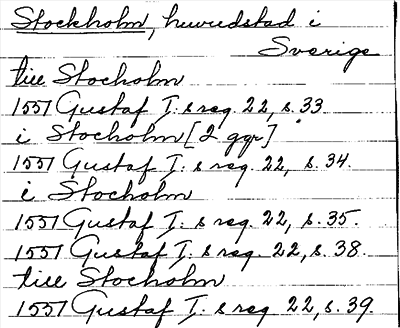 Stockholm, huvudstad i
Sverige
till Stocholm
1551 Gustaf I:s reg. 22, s. 33
i Stocholm [2 ggr]
1551 Gustaf I:s reg. 22, s. 34.
i Stocholm
1551 Gustaf I:s reg. 22, s. 35.
1551 Gustaf I:s reg. 22, s. 38.
till Stocholm
1551 Gustaf I:s reg. 22, s. 39.